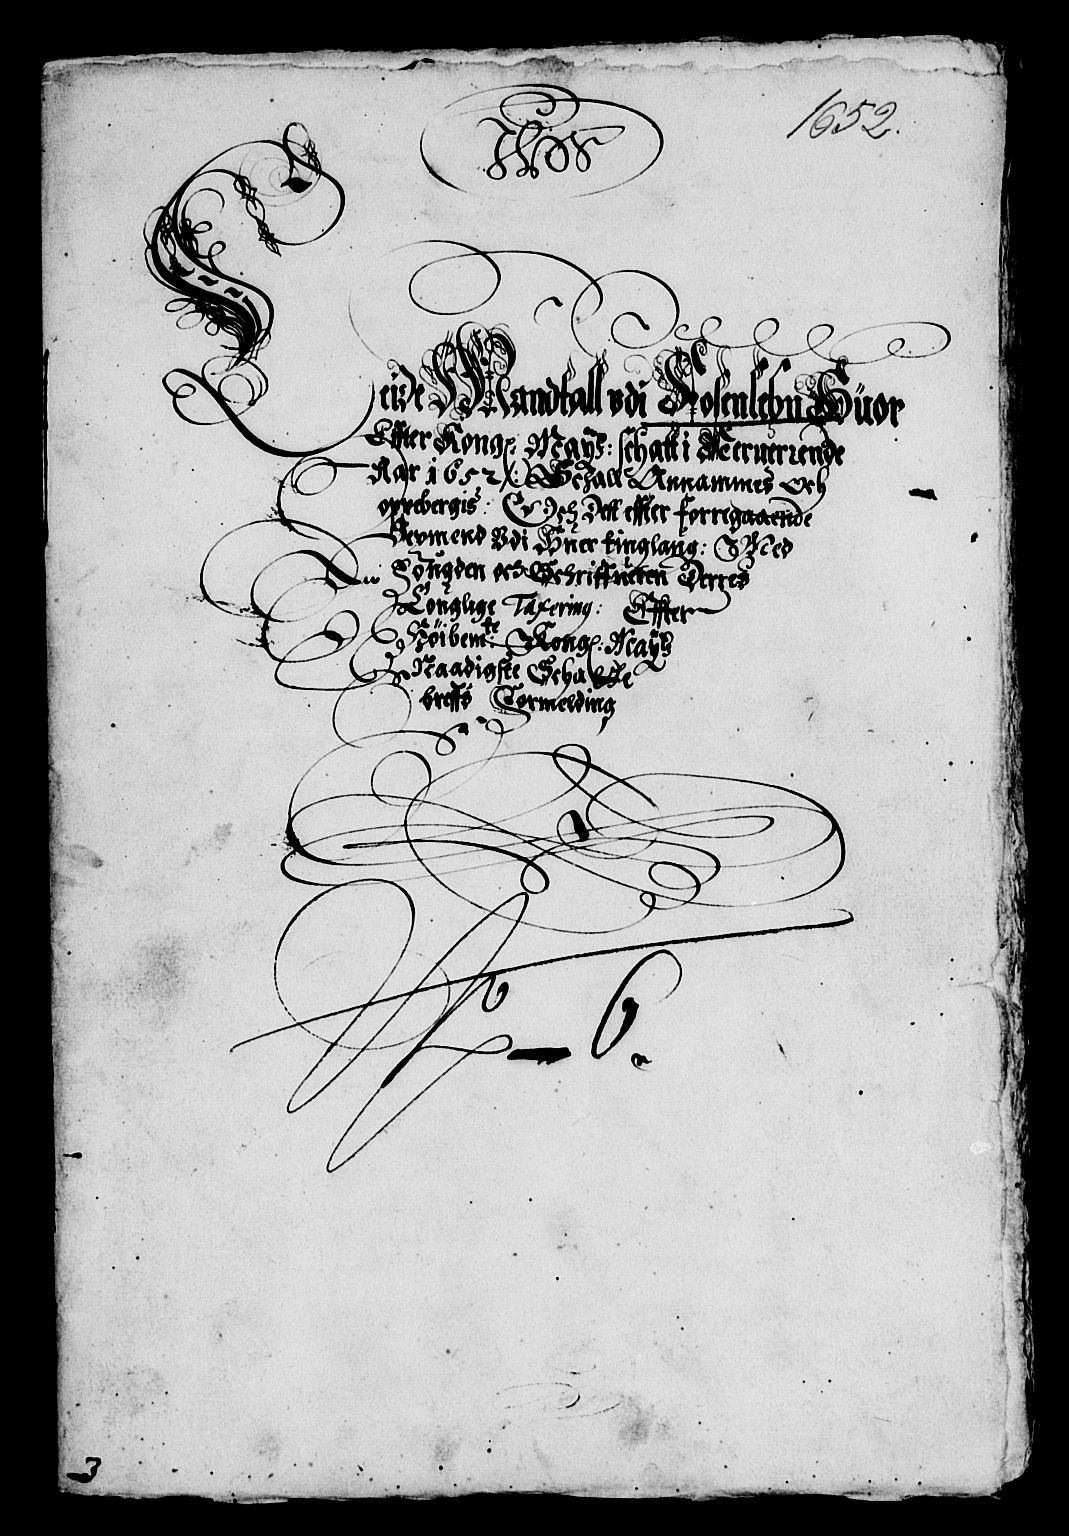 1652.
Leide Mandtall vdi Rosenlehn Huor
Effter Kong: Mayß: schatt i Neruerrende
Aar 1652 Schall Annammes och
oppebergis: Er Och Dett effter forregaaende
Beømend Vdi Huer tinglaug: Med
Fougden och Schriffueren Derres
Louglige Taxering: Effter
Höibemte: Kong: Mayß
Naadigste Schatte
breffs Formelding
6
3